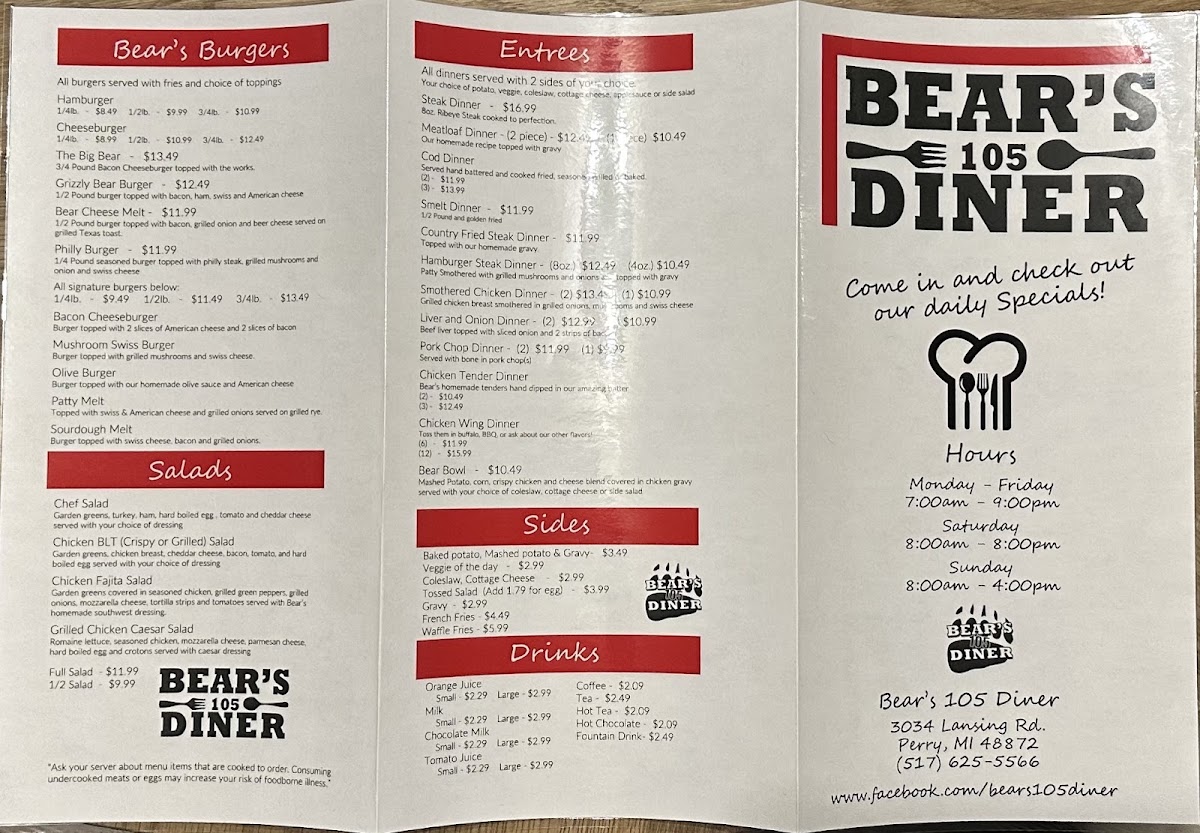 Bear's Burgers
All burgers served with fries and choice of toppings
Hamburger
1/4lb. - $8.49 1/2lb. - $9.99 3/4lb. - $10.99
Cheeseburger
1/4lb. - $8.99 1/2lb. - $10.99 3/4lb. - $12.49
The Big Bear - $13.49
3/4 Pound Bacon Cheeseburger topped with the works.
Grizzly Bear Burger - $12.49
1/2 Pound burger topped with bacon, ham, swiss and American cheese
Bear Cheese Melt - $11.99
1/2 Pound burger topped with bacon, grilled onion and beer cheese served on
grilled Texas toast.
Philly Burger - $11.99
1/4 Pound seasoned burger topped with philly steak, grilled mushrooms and
onion and swiss cheese
All signature burgers below:
1/4lb. - $9.49 1/2lb. - $11.49 3/4lb. - $13.49
Bacon Cheeseburger
Burger topped with 2 slices of American cheese and 2 slices of bacon
Mushroom Swiss Burger
Burger topped with grilled mushrooms and swiss cheese.
Olive Burger
Burger topped with our homemade olive sauce and American cheese
Patty Melt
Topped with swiss & American cheese and grilled onions served on grilled rye.
Sourdough Melt
Burger topped with swiss cheese, bacon and grilled onions.
Salads
Chef Salad
Garden greens, turkey, ham, hard boiled egg , tomato and cheddar cheese
served with your choice of dressing
Chicken BLT (Crispy or Grilled) Salad
Garden greens, chicken breast, cheddar cheese, bacon, tomato, and hard
boiled egg served with your choice of dressing
Chicken Fajita Salad
Garden greens covered in seasoned chicken, grilled green peppers, grilled
onions, mozzarella cheese, tortilla strips and tomatoes served with Bear's
homemade southwest dressing.
Grilled Chicken Caesar Salad
Romaine lettuce, seasoned chicken, mozzarella cheese, parmesan cheese,
hard boiled egg and crotons served with caesar dressing
Full Salad - $11.99
1/2 Salad - $9.99
BEAR'S
105
DINER
"Ask your server about menu items that are cooked to order. Consuming
undercooked meats or eggs may increase your risk of foodborne illness."
Entrees
All dinners served with 2 sides of your choice
Your choice of potato, veggie, coleslaw, cottage cheese, applesauce or side salad
Steak Dinner - $16.99
8oz. Ribeye Steak cooked to perfection.
Meatloaf Dinner - (2 piece) - $12.49 (1 piece) $10.49
Our homemade recipe topped with gravy
Cod Dinner
Served hand battered and cooked fried, seasoned, grilled or baked.
(2) - $11.99
(3) - $13.99
Smelt Dinner - $11.99
1/2 Pound and golden fried
Country Fried Steak Dinner - $11.99
Topped with our homemade gravy.
Hamburger Steak Dinner - (8oz.) $12.49 (4oz.) $10.49
Patty Smothered with grilled mushrooms and onions topped with gravy
Smothered Chicken Dinner - (2) $13.49 (1) $10.99
Grilled chicken breast smothered in grilled onions, mushrooms and swiss cheese
Liver and Onion Dinner - (2) $12.99 $10.99
Beef liver topped with sliced onion and 2 strips of bacon
Pork Chop Dinner - (2) $11.99 (1) $9.99
Served with bone in pork chop(s)
Chicken Tender Dinner
Bear's homemade tenders hand dipped in our amazing batter
(2) - $10.49
(3) - $12.49
Chicken Wing Dinner
Toss them in buffalo, BBQ, or ask about our other flavors!
(6) - $11.99
(12) - $15.99
Bear Bowl - $10.49
Mashed Potato, corn, crispy chicken and cheese blend covered in chicken gravy
served with your choice of coleslaw, cottage cheese or side salad
Sides
Baked potato, Mashed potato & Gravy- $3.49
Veggie of the day - $2.99
Coleslaw, Cottage Cheese - $2.99
Tossed Salad (Add 1.79 for egg) - $3.99
Gravy - $2.99
French Fries - $4.49
Waffle Fries - $5.99
BEAR'S
105
DINER
Drinks
Orange Juice
Small - $2.29 Large - $2.99
Milk
Small - $2.29 Large - $2.99
Chocolate Milk
Small - $2.29 Large - $2.99
Tomato Juice
Small - $2.29 Large - $2.99
Coffee - $2.09
Tea - $2.49
Hot Tea - $2.09
Hot Chocolate - $2.09
Fountain Drink- $2.49
BEAR'S
105
DINER
Come in and check out
our daily Specials!
Hours
Monday - Friday
7:00am - 9:00pm
Saturday
8:00am - 8:00pm
Sunday
8:00am - 4:00pm
BEAR'S
105
DINER
Bear's 105 Diner
3034 Lansing Rd.
Perry, MI 48872
(517) 625-5566
www.facebook.com/bears105diner